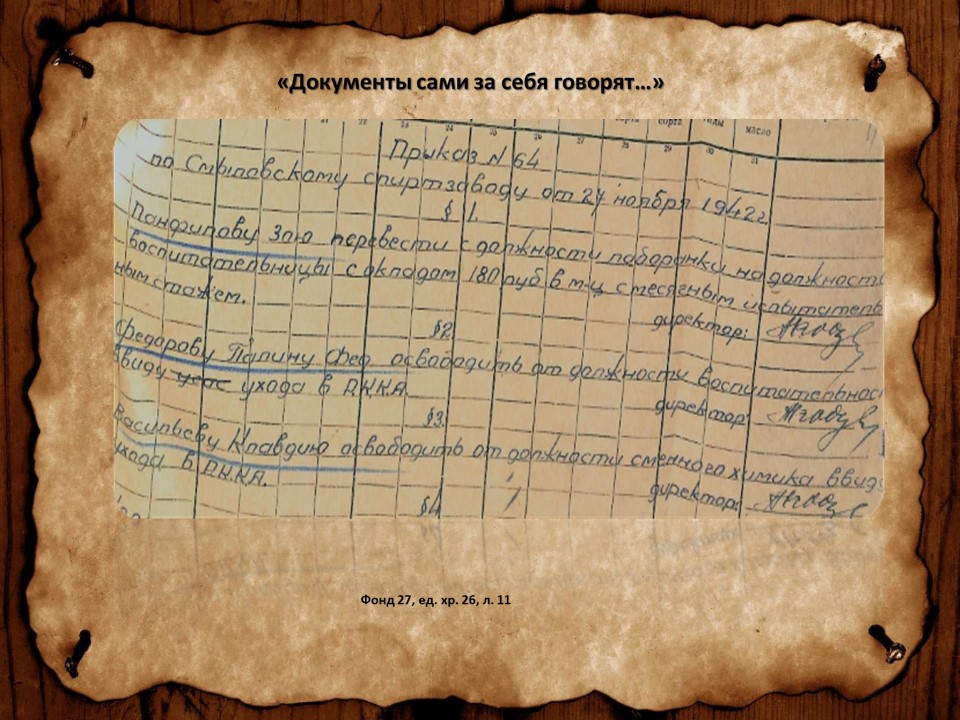 «Документы сами за себя говорят…»
23 24 25 26 27 28 29 30 31
сорта масло
Приказ N 64
по Стылавскому спиртзаводу от 27 ноября 1942 г.
§ 1.
Панфилову Заю перевести с должности лаборанки на должность
воспитательницы с окладом 180 руб в м-ц с месячным испытатель
ным стажем.
директор:
§2.
Федарову Палину Фед. освабадить от должности воспитательнос
ввиду ухода в Р.К.К.А.
директор:
§3.
Васильеву Клавдию освабадить от должности сменного химика ввиду
ухода в Р.К.К.А.
директор:
§4
Фонд 27, ед. хр. 26, л. 11